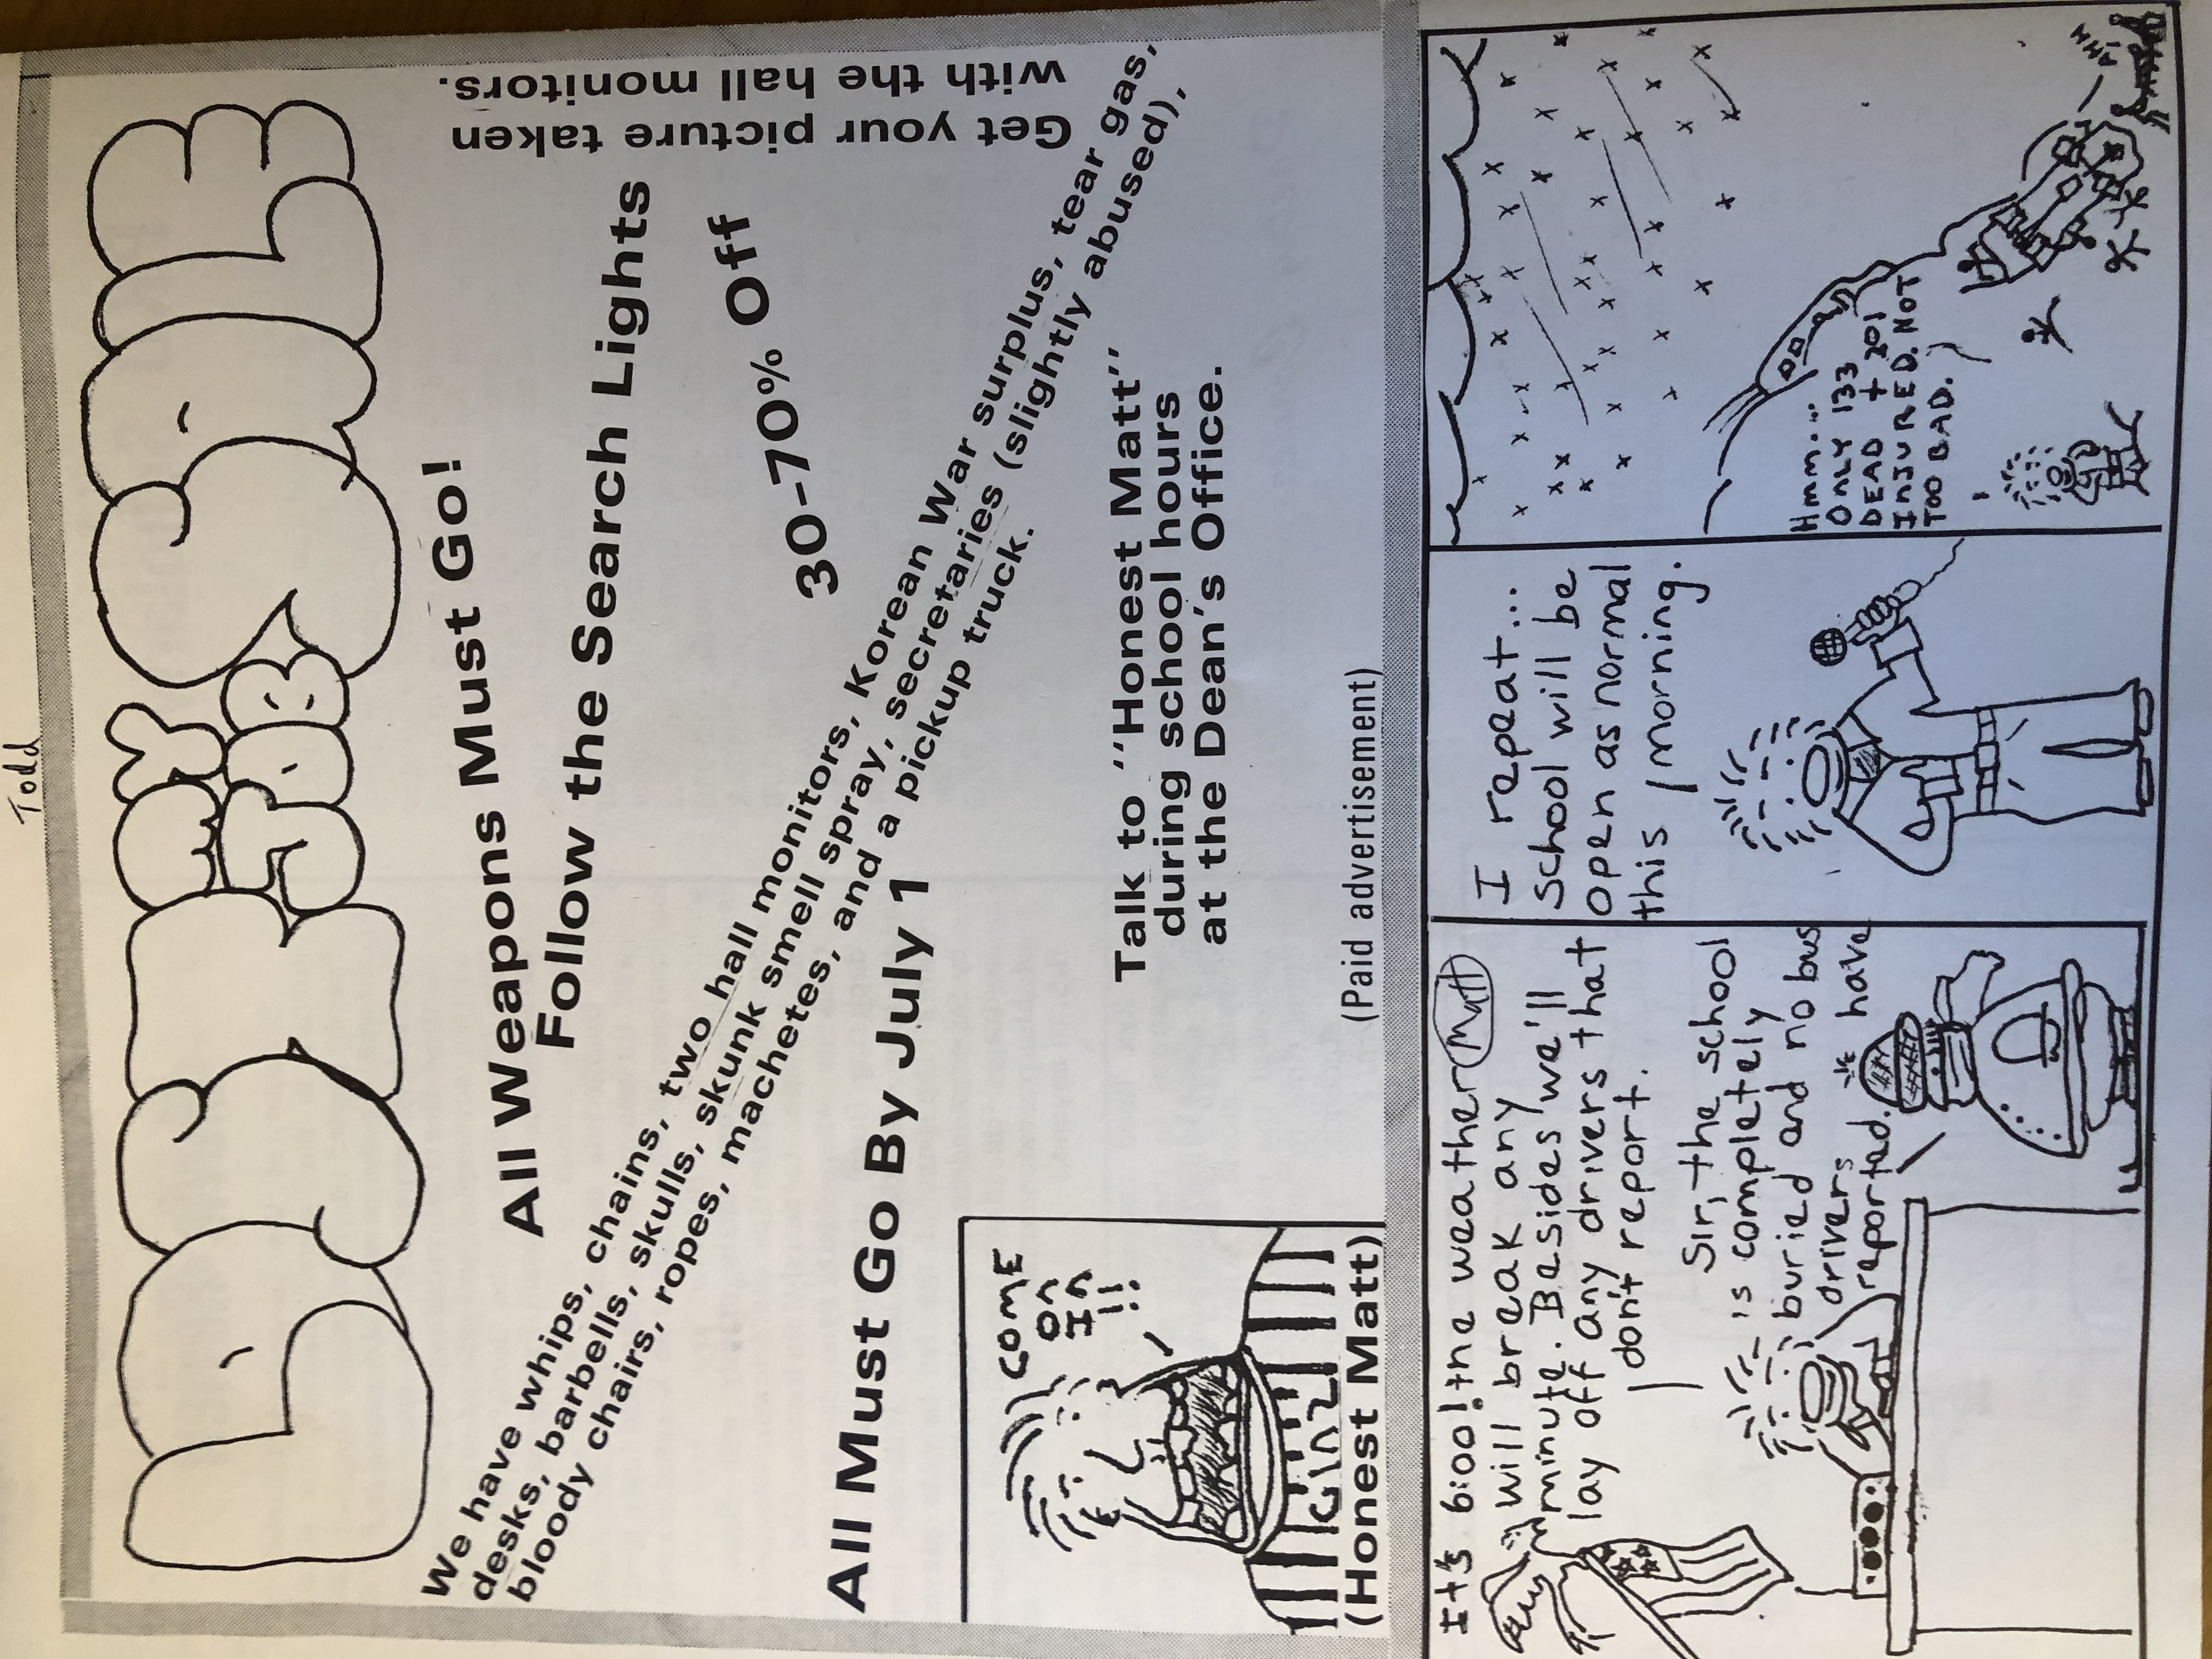 Todd
LOST MY JOB SALE
All Weapons Must Go!
Follow the Search Lights
We have whips, chains, two hall monitors, Korean War surplus, tear gas,
desks, barbells, skulls, skunk smell spray, secretaries (slightly abused),
bloody chairs, ropes, machetes, and a pickup truck.
30-70% Off
Get your picture taken
with the hall monitors.
All Must Go By July 1
COME
ON
IN
!!
GINZ
(Honest Matt)
Talk to "Honest Matt"
during school hours
at the Dean's Office.
(Paid advertisement)
It's 6:00! the weather
Matt
will break any
minute. Besides we'll
lay off any drivers that
don't report.
Sir, the school
is completely
buried and no bus
drivers have
reported.
I repeat...
school will be
open as normal
this morning.
Hmm....
ONLY 133
DEAD + 201
INJURED. NOT
TOO BAD.
AHH